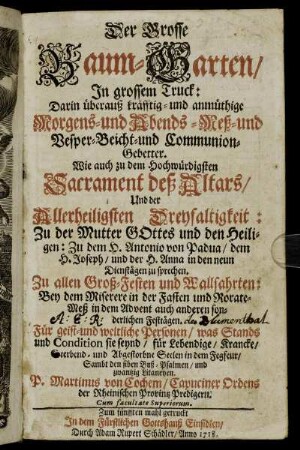 Der Grosse
Baum-Garten/
In grossem Truck:
Darin überauß kräfftig- und anmüthige
Morgens- und Abends-Meß- und
Vesper-Beicht- und Communion-
Gebetter.
Wie auch zu dem Hochwürdigsten
Sacrament deß Altars/
Und der
Allerheiligsten Dreyfaltigkeit:
Zu der Mutter GOttes und den Heili-
gen: Zu dem H. Antonio von Padua/ dem
H. Joseph/ und der H. Anna in den neun
Dienstägen zu sprechen.
Zu allen Groß-Festen und Wallfahrten:
Bey dem Miserere in der Fasten und Rorate-
Meß in dem Advent auch anderen son-
A: E: R: derlichen Festtägen. de Blumenthal
Für geist- und weltliche Personen/ was Stands
und Condition sie seynd/ für Lebendige/ Krancke/
Sterbend- und Abgestorbne Seelen in dem Fegfeur/
Sambt den siben Buß-Psalmen/ und
zwantzig Litaneyen.
P. Martinus von Cochem/ Capuciner Ordens
der Rheinischen Provintz Predigern.
Cum facultate Superiorum.
Zum fünfften mahl getruckt
In dem Fürstlichen Gottshauß Einsidlen/
Durch Adam Rupert Schädler/ Anno 1718.